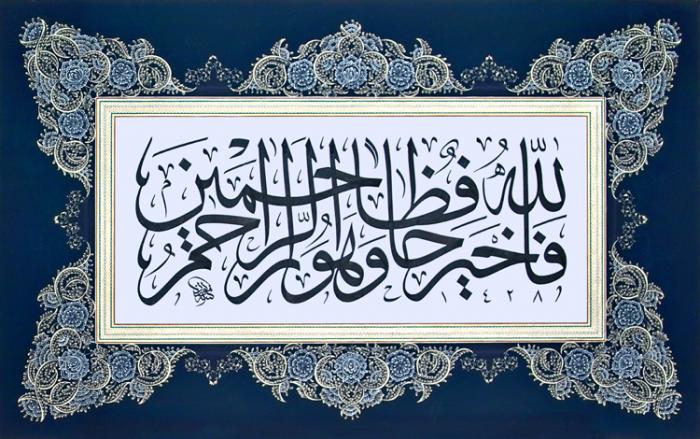 فالله خير حافظا وهو أرحم الراحمين
١٤٢٨